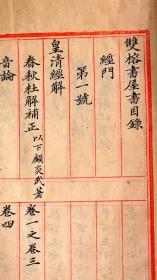 雙榕書屋書目錄
經門
第一號
皇清經解
春秋杜解補正 以下顧炎武著 卷一之卷三
音論 卷四